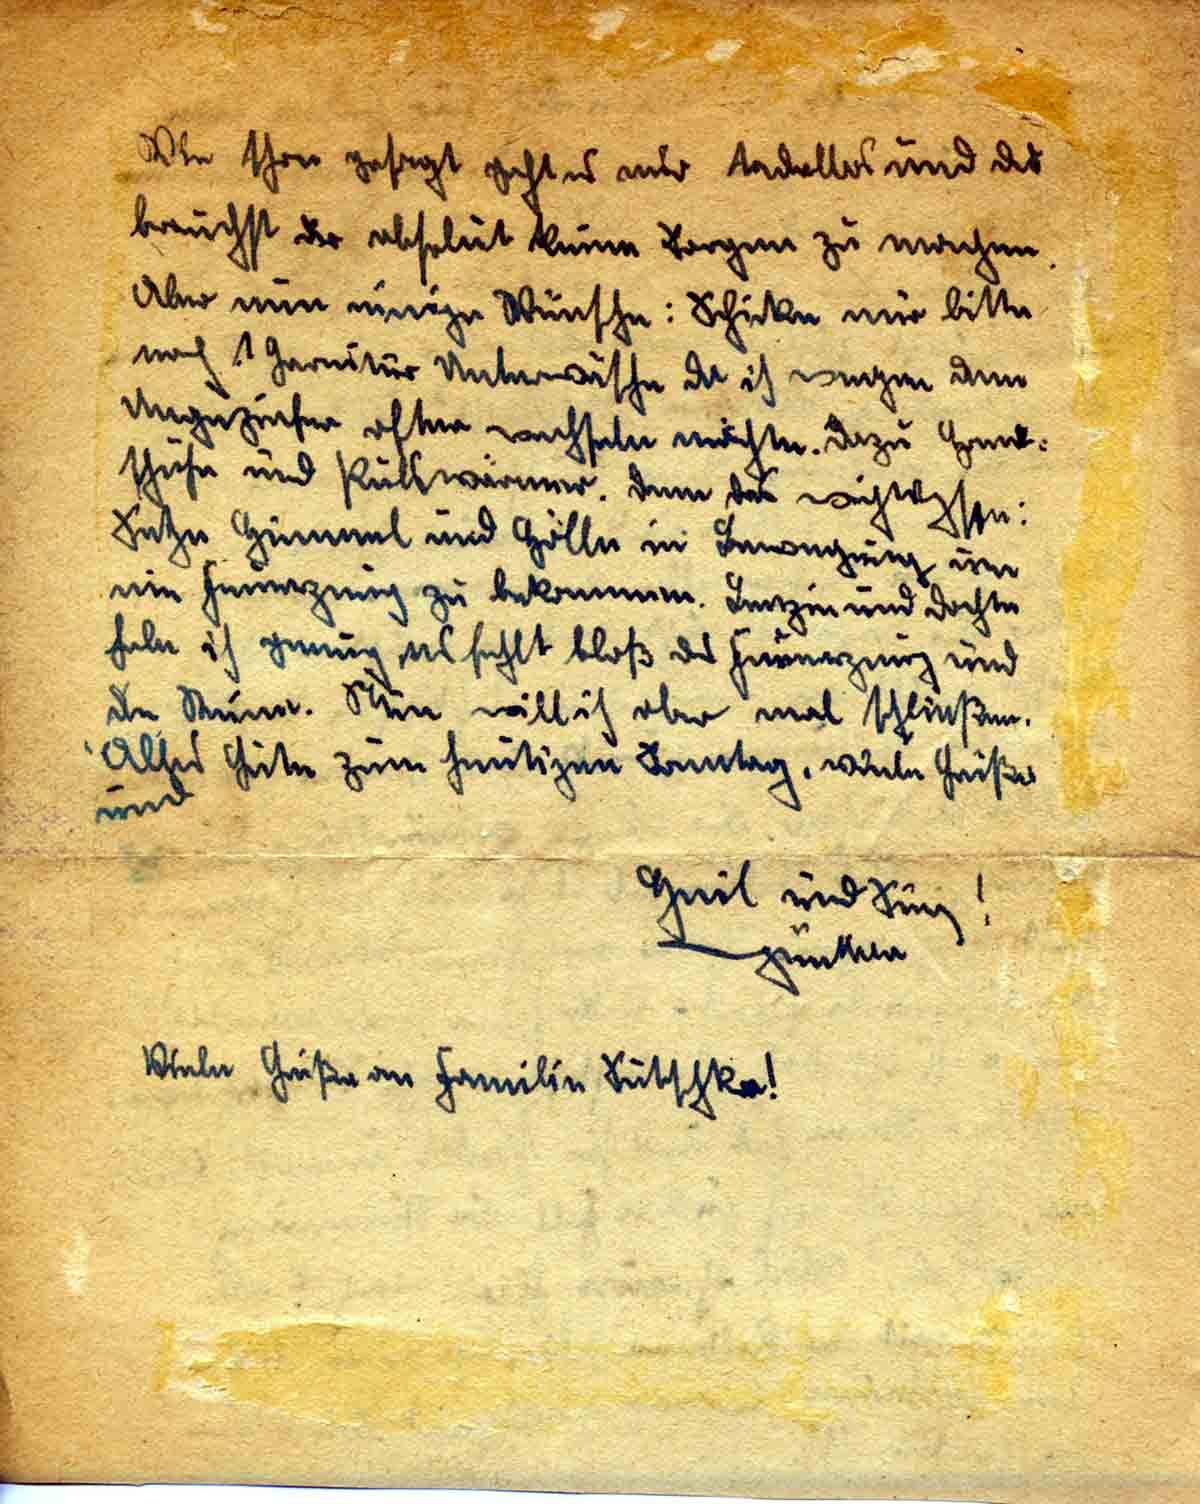 Wie schon gesagt geht es mir tadellos und du
brauchst dir absolut keine Sorgen zu machen.
Aber nun einige Wünsche: Schicke mir bitte
noch 1 Garnitur Unterwäsche da ich wegen dem
Ungeziefer öfter wechseln möchte. Dazu Hand-
schuhe und Pulswärmer. Dann das wichtigste:
Setze Himmel und Hölle in Bewegung um
ein Feuerzeug zu bekommen. Benzin und Dochte
habe ich genug, es fehlt bloß das Feuerzeug und
die Steine. Nun will ich aber mal schließen.
Alles Gute zum heutigen Sonntag, viele Grüße
und
Heil und Sieg!
Günther
Viele Grüße an Familie